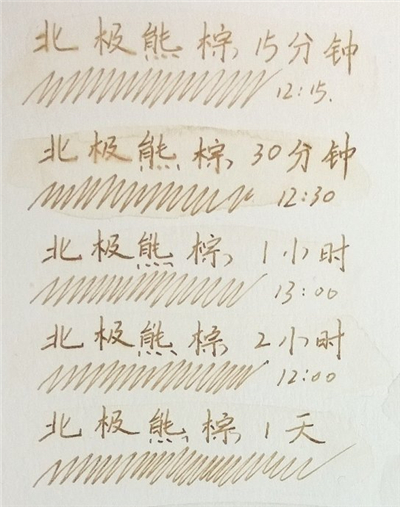 北极熊棕 15分钟
12:15.
北极熊棕 30分钟
12:30
北极熊棕 1小时
13:00
北极熊棕 2小时
12:00
北极熊棕 1天